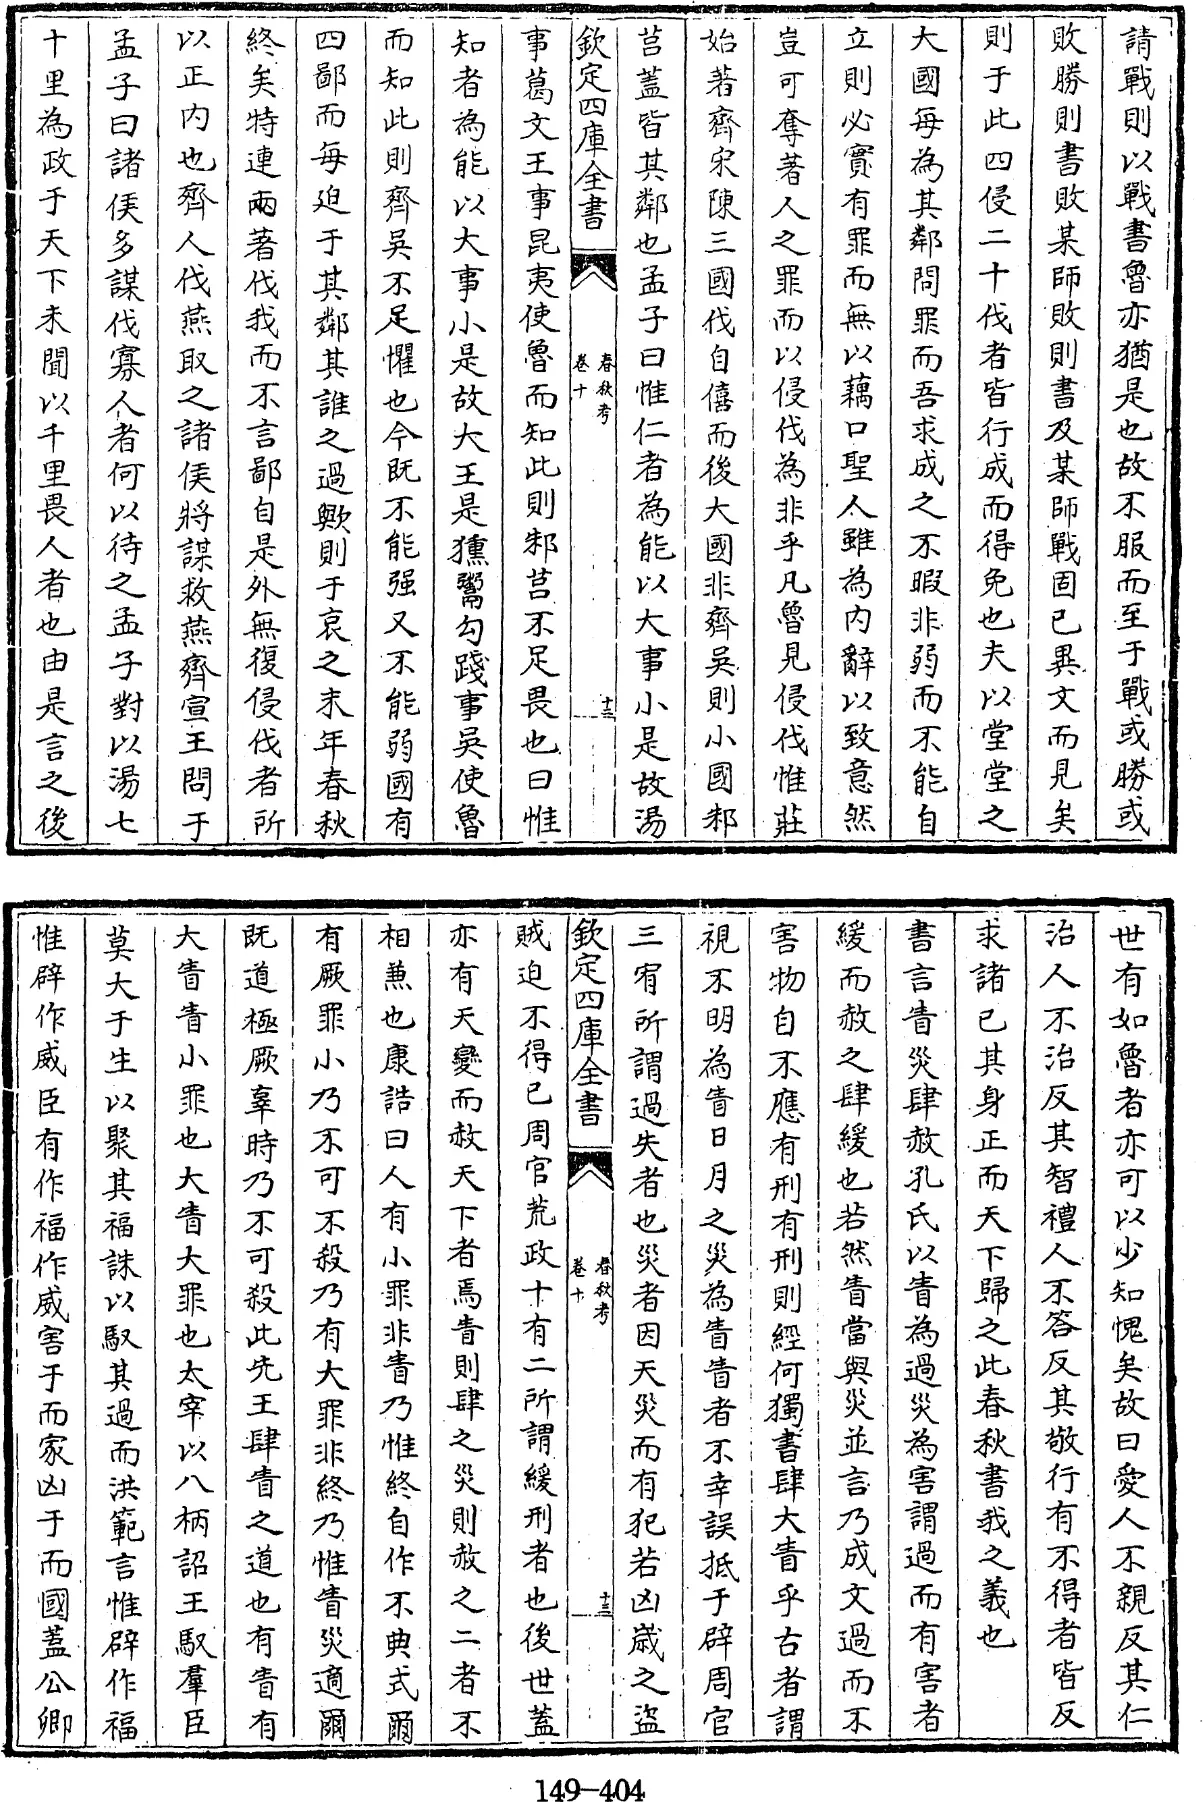 請戰則以戰書魯亦猶是也故不服而至于戰或勝或
敗勝則書敗某師敗則書及某師戰固已異文而見矣
則于此四侵二十伐者皆行成而得免也夫以堂堂之
大國每為其鄰問罪而吾求成之不暇非弱而不能自
立則必實有罪而無以藉口聖人雖為内辭以致意然
豈可奪著人之罪而以侵伐為非乎凡魯見侵伐惟莊
始著齊宋陳三國伐自僖而後大國非齊吳則小國邾
莒蓋皆其鄰也孟子曰惟仁者為能以大事小是故湯
欽定四庫全書
春秋考
卷十
十三
事葛文王事昆夷使魯而知此則邾莒不足畏也曰惟
知者為能以大事小是故大王是獯鬻勾踐事吳使魯
而知此則齊吳不足懼也今既不能强又不能弱國有
四鄙而每迫于其鄰其誰之過歟則于哀之末年春秋
終矣特連兩著伐我而不言鄙自是外無復侵伐者所
以正内也齊人伐燕取之諸侯將謀救燕齊宣王問于
孟子曰諸侯多謀伐寡人者何以待之孟子對以湯七
十里為政于天下未聞以千里畏人者也由是言之後
世有如魯者亦可以少知愧矣故曰愛人不親反其仁
治人不治反其智禮人不答反其敬行有不得者皆反
求諸己其身正而天下歸之此春秋書我之義也
書言眚災肆赦孔氏以眚為過災為害謂過而有害者
緩而赦之肆緩也若然眚當與災並言乃成文過而不
害物自不應有刑有刑則經何獨書肆大眚乎古者謂
視不明為眚日月之災為眚眚者不幸誤抵于辟周官
三宥所謂過失者也災者因天災而有犯若凶歲之盜
欽定四庫全書
春秋考
卷十
十三
賊迫不得已周官荒政十有二所謂緩刑者也後世蓋
亦有天變而赦天下者焉眚則肆之災則赦之二者不
相兼也康誥曰人有小罪非眚乃惟終自作不典式爾
有厥罪小乃不可不殺乃有大罪非終乃惟眚災適爾
既道極厥辜時乃不可殺此先王肆眚之道也有眚有
大眚眚小罪也大眚大罪也太宰以八柄詔王馭羣臣
莫大于生以聚其福誅以馭其過而洪範言惟辟作福
惟辟作威臣有作福作威害于而家凶于而國蓋公卿
149-404